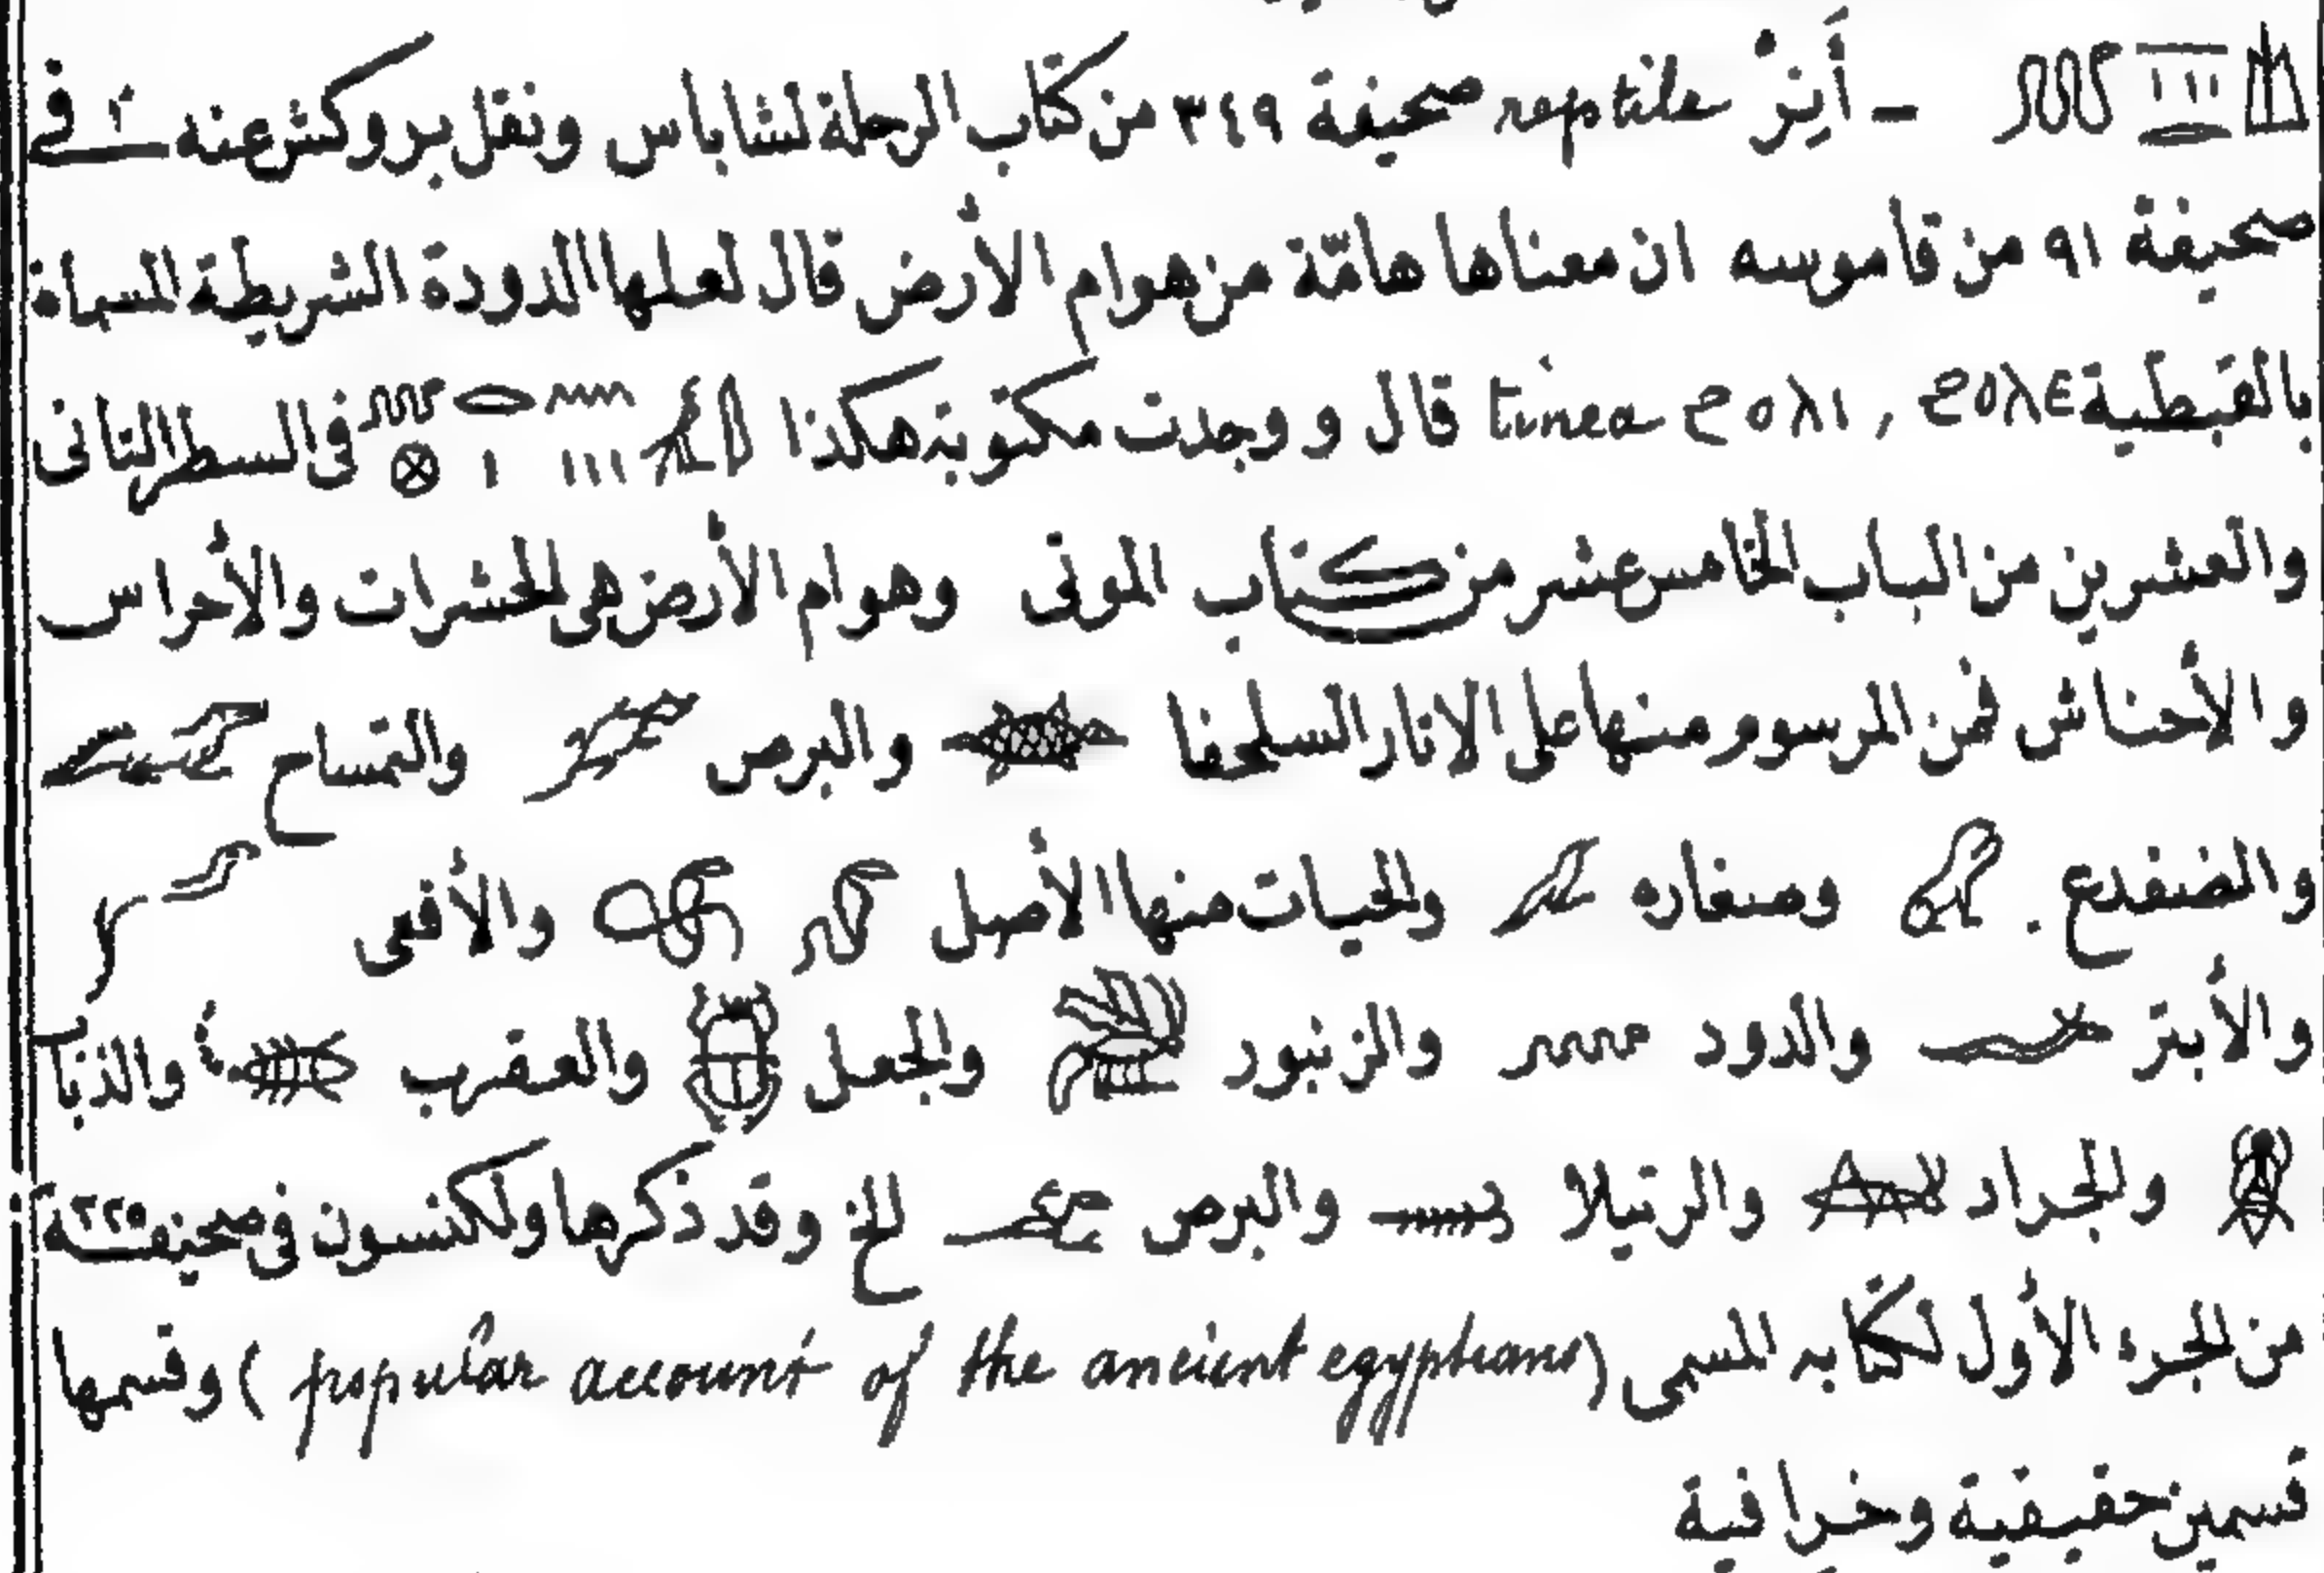 — أَنِرْ reptile صحيفة ٣٤٩ من كتاب الرحلة لشاباس ونقل بروكش عنه في
صحيفة ٩١ من قاموسه ان معناها هامّة من هوام الأرض قال لعلها الدودة الشريطة المسماة
بالقبطية ϩⲟⲗⲉ , ϩⲟⲗⲓ tinea قال و وجدت مكتوبة هكذا في السطر الثانى
والعشرين من الباب الخامس عشر من كتاب الموتى وهوام الأرض هى الحشرات والأحراس
والأحناش فمن المرسوم منها على الاثار السلحفا والبرص والتمساح
والضفدع . وصغاره والحيات منها الأصل والأفعى
والأبتر والدود والزنبور والجعل والعقرب والذباب
والجراد والرتيلا والبرص الخ وقد ذكرها ولكنسون فى صحيفة ٢٢٥
من الجزء الأول لكتابه المسمى (popular account of the ancient egyptians) وقسمها
قسمين حقيقية وخرافية